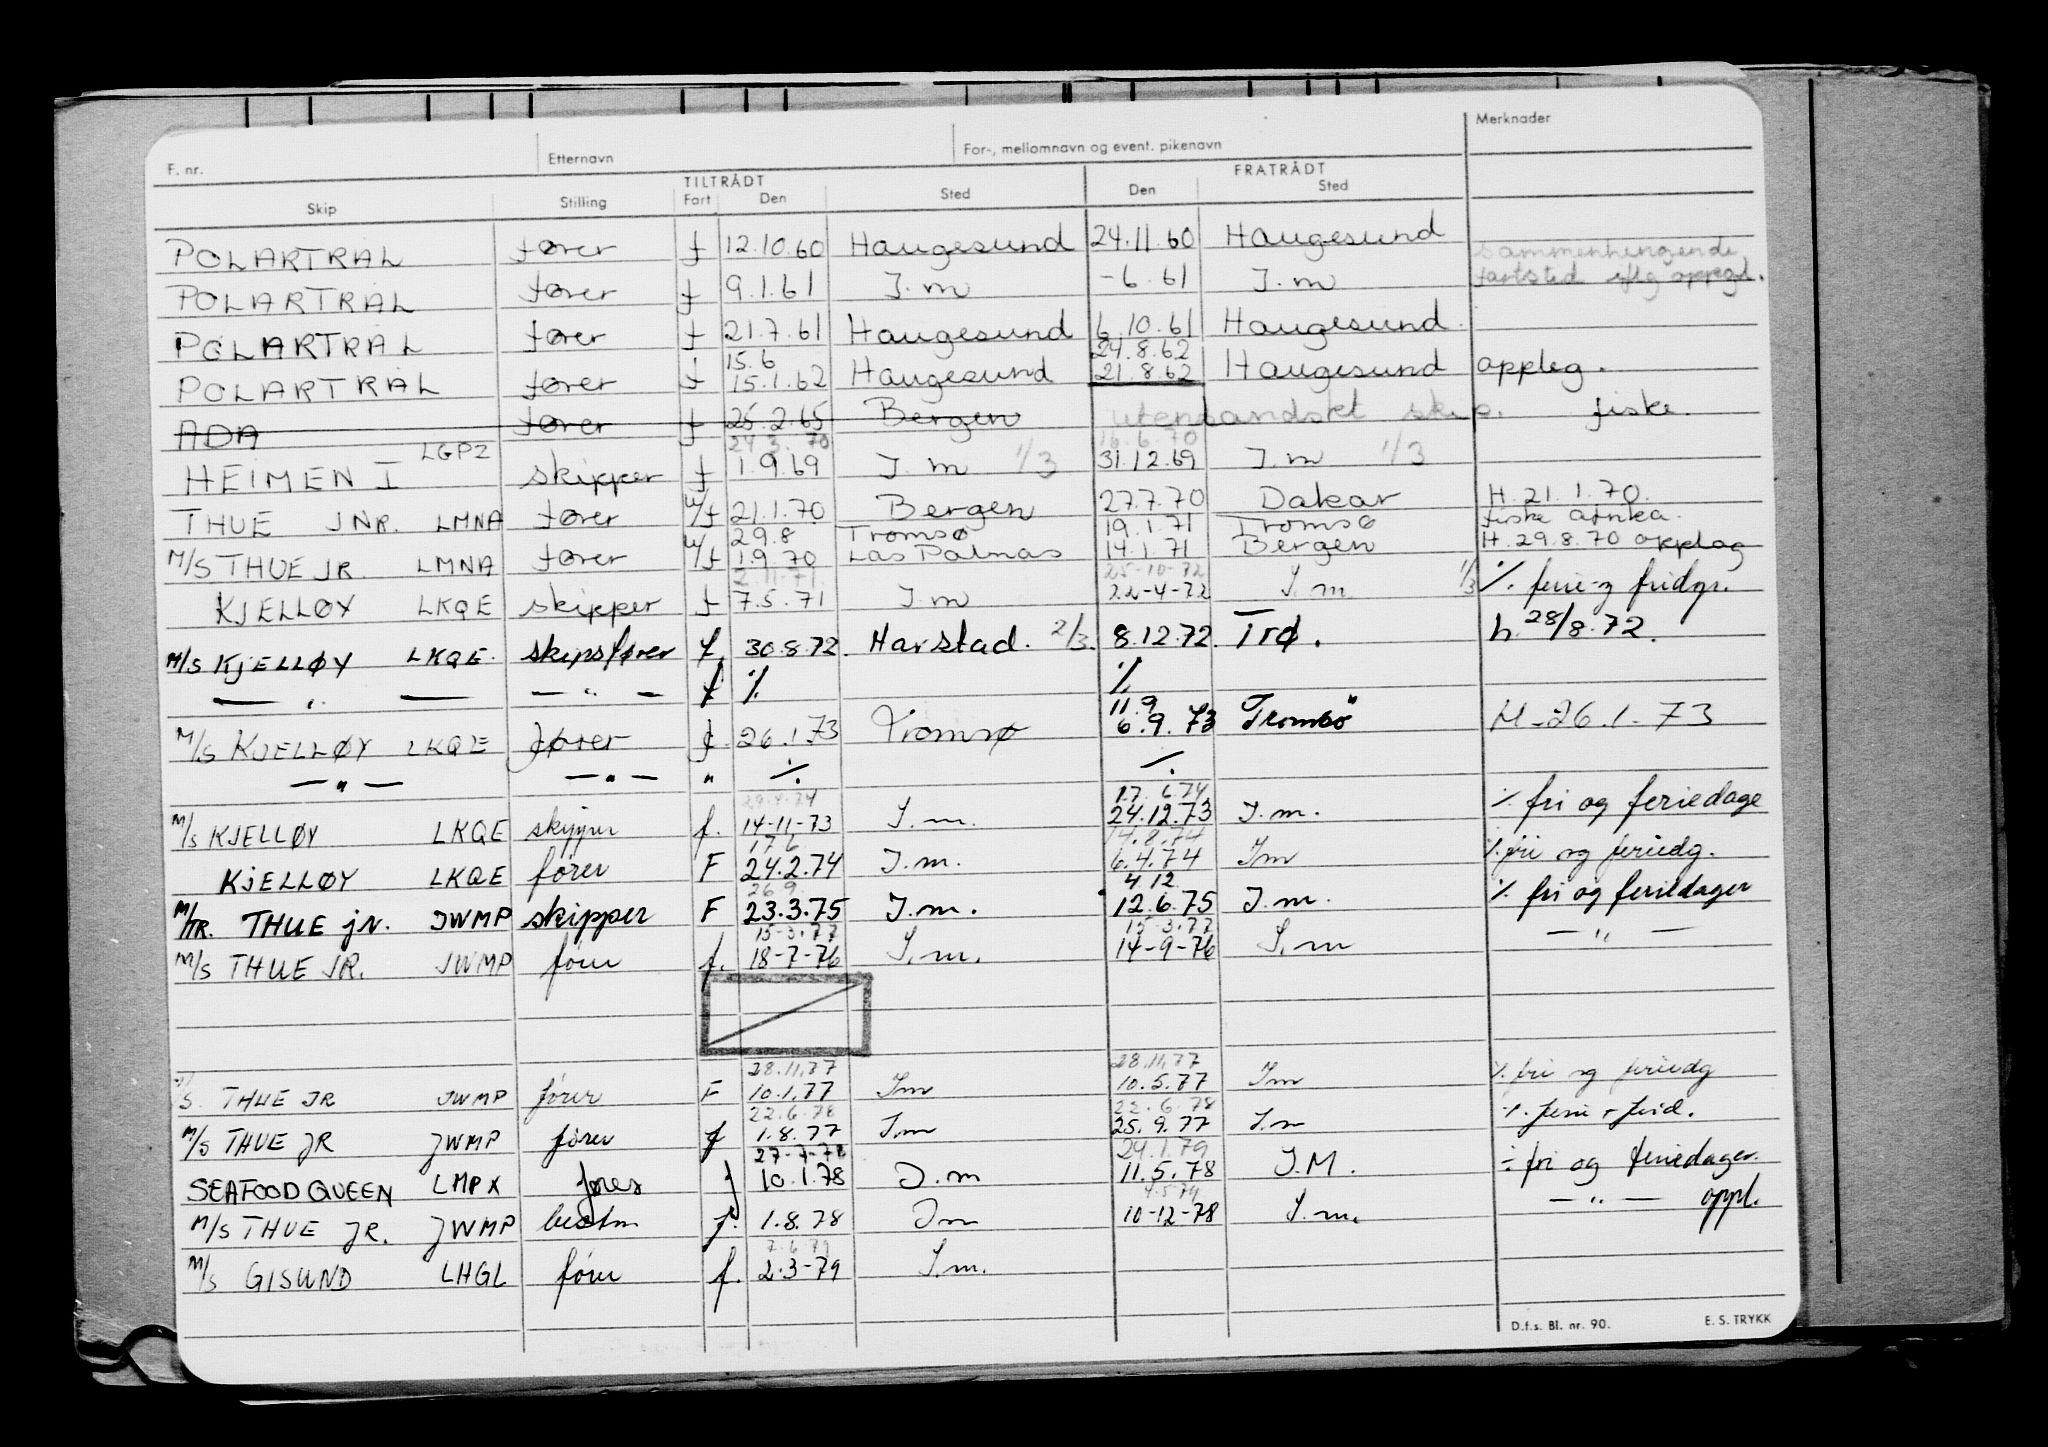 F. nr. Etternavn For-, mellomnavn og event. pikenavn Merknader
TILTRÅDT FRATRÅDT
Skip Stilling Fart Den Sted Den Sted
POLARTRÅL fører f 12.10.60 Haugesund 24.11.60 Haugesund sammenhengende
POLARTRÅL fører f 9.1.61 I.m -6.61 I.m fartstid iflg oppgt.
POLARTRÅL fører f 21.7.61 Haugesund 6.10.61 Haugesund
15.6 24.8.62
POLARTRÅL fører f 15.1.62 Haugesund 21.8.62 Haugesund oppleg.
ADA fører f 25.2.65 Bergen utenlandskt skip. fiske.
24.3.70 16.6.70
HEIMEN I LGPZ skipper f 1.9.69 I.m 1/3 31.12.69 I.m 1/3
THUE JNR. LMNA fører u/f 21.1.70 Bergen 27.7.70 Dakar H.21.1.70.
29.8 Tromsø 19.1.71 Tromsø fiske afrika.
M/S THUE JR. LMNA fører u/f 1.9.70 Las Palmas 14.1.71 Bergen H.29.8.70 opplag
2.11.71. 25-10-72
KJELLØY LKQE skipper f 7.5.71 I.m 22-4-72 I.m 1/3 ÷ ferie og fridgr.
M/S KJELLØY LKQE. skipsfører f. 30.8.72. Harstad. 2/3. 8.12.72. Trø. h. 28/8.72.
— " — — " — f ÷ ÷
11.9
M/S KJELLØY LKQE fører f. 26.1.73 Tromsø 6.9.73 Tromsø H-26.1-73
— " — — " — " ÷ ÷
29.4.74 17.6.74
M/S KJELLØY LKQE skipper f. 14-11-73 I.m. 24.12.73 I.m. ÷ fri og feriedage
17.6 14.8.74
KJELLØY LKQE fører F 24.2.74 I.m. 6.4.74 Im ÷ fri og feriedg.
26.9. 4.12.
M/TR. THUE jr. JWMP skipper F 23.3.75 I.m. 12.6.75 I.m. ÷ fri og feriedager
15-3.77 15-3.77
M/S THUE JR. JWMP fører f. 18-7-76 I.m. 14-9-76 I.m — " —
28.11.77 28.11.77
S. THUE JR JWMP fører F 10.1.77 Im 10.5.77 Im ÷ fri og feriedg
22.6.78 22.6.78
M/S THUE JR JWMP fører f 1.8.77 I.m 25.9.77 I.m ÷ ferie + frid.
27-7-78 24.1.79
SEAFOOD QUEEN LMPX fører f 10.1.78 I.m 11.5.78 I.M. ÷ fri og feriedager.
4.5.79
M/S THUE JR. JWMP bestm f. 1.8.78 Im 10-12-78 I.m. — " — oppl.
7.6.79
M/S GISUND LHGL fører f. 2.3-79 I.m.
D.f.s. Bl. nr. 90. E. S. TRYKK